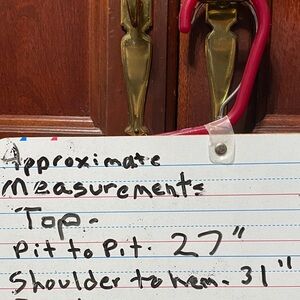 Approximate
Measurements
Top-
Pit to Pit. 27"
Shoulder to hem. 31"